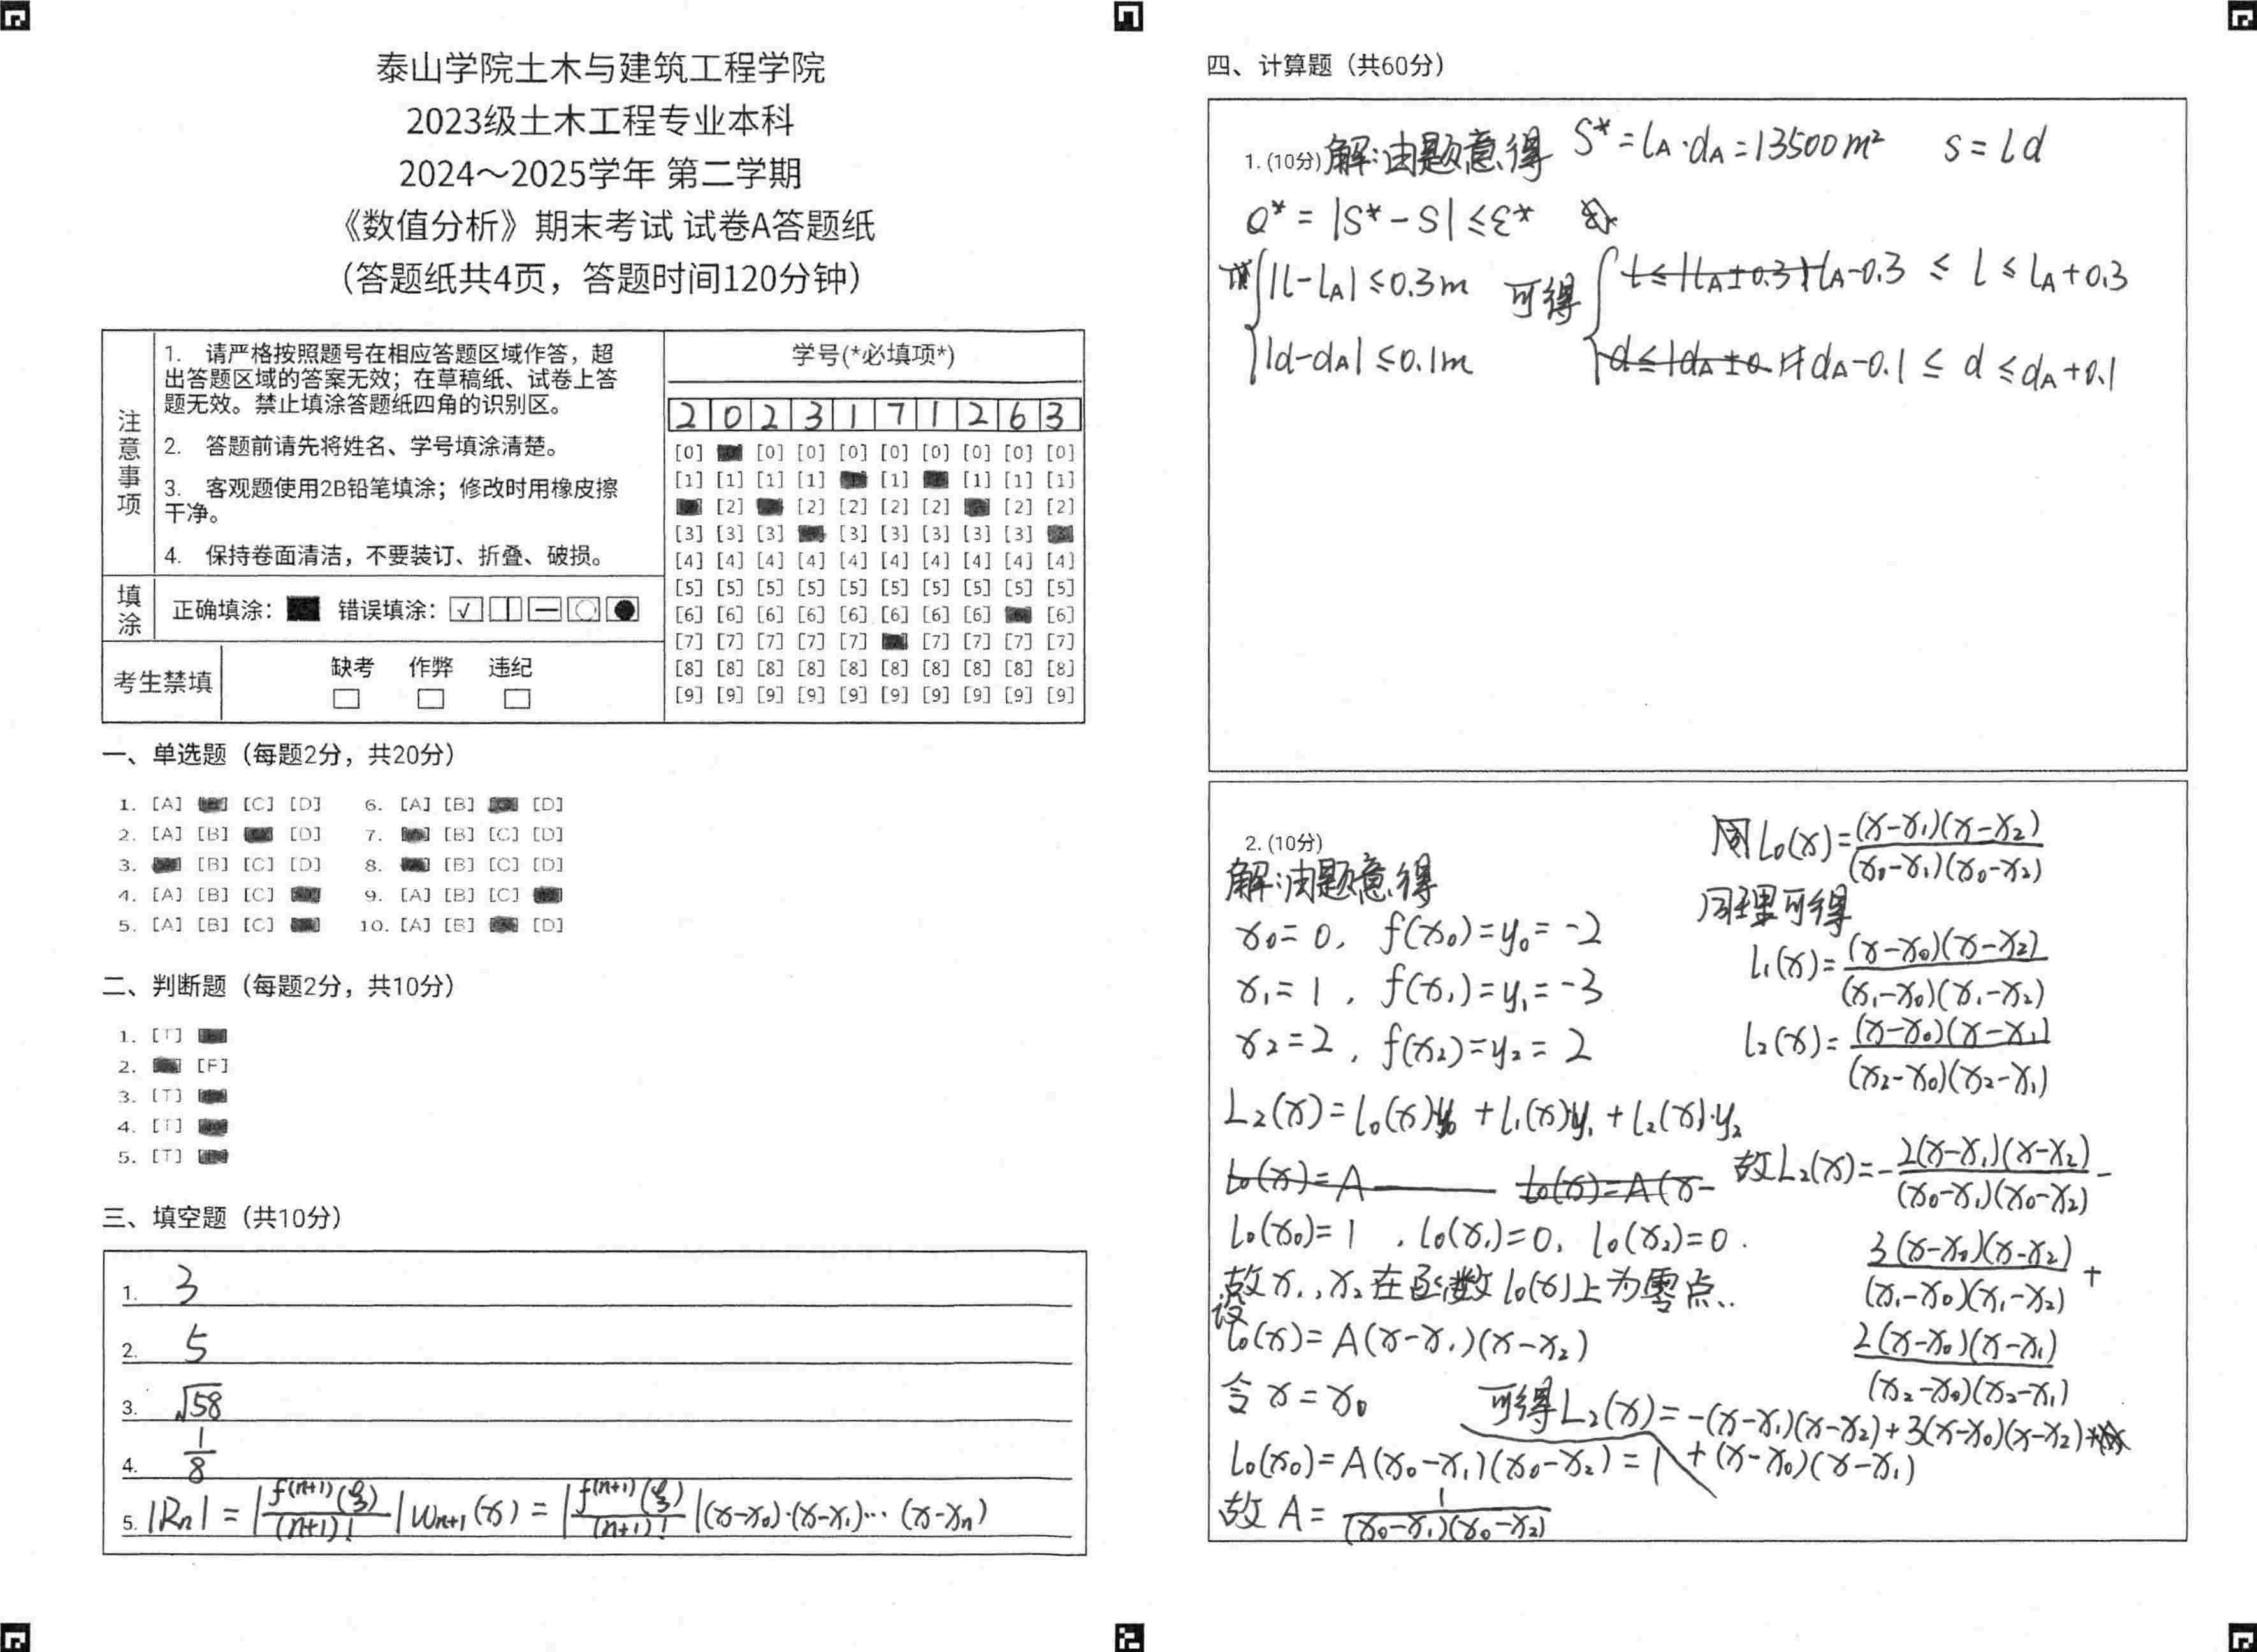 泰山学院土木与建筑工程学院
2023级土木工程专业本科
2024～2025学年 第二学期
《数值分析》期末考试 试卷A答题纸
（答题纸共4页，答题时间120分钟）
注意事项
1. 请严格按照题号在相应答题区域作答，超
出答题区域的答案无效；在草稿纸、试卷上答
题无效。禁止填涂答题纸四角的识别区。
2. 答题前请先将姓名、学号填涂清楚。
3. 客观题使用2B铅笔填涂；修改时用橡皮擦
干净。
4. 保持卷面清洁，不要装订、折叠、破损。
填涂
正确填涂： 错误填涂：
考生禁填
缺考 作弊 违纪
学号(*必填项*)
2 0 2 3 1 7 1 2 6 3
[0] [0] [0] [0] [0] [0] [0] [0] [0]
[1] [1] [1] [1] [1] [1] [1] [1]
[2] [2] [2] [2] [2] [2] [2]
[3] [3] [3] [3] [3] [3] [3] [3]
[4] [4] [4] [4] [4] [4] [4] [4] [4] [4]
[5] [5] [5] [5] [5] [5] [5] [5] [5] [5]
[6] [6] [6] [6] [6] [6] [6] [6] [6]
[7] [7] [7] [7] [7] [7] [7] [7] [7]
[8] [8] [8] [8] [8] [8] [8] [8] [8] [8]
[9] [9] [9] [9] [9] [9] [9] [9] [9] [9]
一、单选题（每题2分，共20分）
1. [A] [C] [D] 6. [A] [B] [D]
2. [A] [B] [D] 7. [B] [C] [D]
3. [B] [C] [D] 8. [B] [C] [D]
4. [A] [B] [C] 9. [A] [B] [C]
5. [A] [B] [C] 10. [A] [B] [D]
二、判断题（每题2分，共10分）
1. [T]
2. [F]
3. [T]
4. [T]
5. [T]
三、填空题（共10分）
1. 3
2. 5
3. √58
4. 1/8
5. |Rn| = |f^(n+1)(ξ)/(n+1)!| ωn+1(x) = |f^(n+1)(ξ)/(n+1)!|(x-x₀)·(x-x₁)···(x-xn)
四、计算题（共60分）
1. (10分) 解:由题意得 S* = lA·dA = 13500m² s = ld
e* = |S* - S| ≤ ε*
{|l-lA| ≤ 0.3m 可得 { lA-0.3 ≤ l ≤ lA+0.3
|d-dA| ≤ 0.1m dA-0.1 ≤ d ≤ dA+0.1
2. (10分)
解:由题意得
x₀ = 0, f(x₀) = y₀ = -2
x₁ = 1, f(x₁) = y₁ = -3
x₂ = 2, f(x₂) = y₂ = 2
L₂(x) = l₀(x)y₀ + l₁(x)y₁ + l₂(x)·y₂
l₀(x) = A l₀(x) = A(x-
l₀(x₀) = 1, l₀(x₁) = 0, l₀(x₂) = 0.
故x₁, x₂在函数l₀(x)上为零点.
设
l₀(x) = A(x-x₁)(x-x₂)
令x = x₀
l₀(x₀) = A(x₀-x₁)(x₀-x₂) = 1
故A = 1/(x₀-x₁)(x₀-x₂)
l₀(x) = (x-x₁)(x-x₂)/(x₀-x₁)(x₀-x₂)
同理可得
l₁(x) = (x-x₀)(x-x₂)/(x₁-x₀)(x₁-x₂)
l₂(x) = (x-x₀)(x-x₁)/(x₂-x₀)(x₂-x₁)
故L₂(x) = -2(x-x₁)(x-x₂)/(x₀-x₁)(x₀-x₂) -
3(x-x₀)(x-x₂)/(x₁-x₀)(x₁-x₂) +
2(x-x₀)(x-x₁)/(x₂-x₀)(x₂-x₁)
可得L₂(x) = -(x-x₁)(x-x₂) + 3(x-x₀)(x-x₂)
+ (x-x₀)(x-x₁)